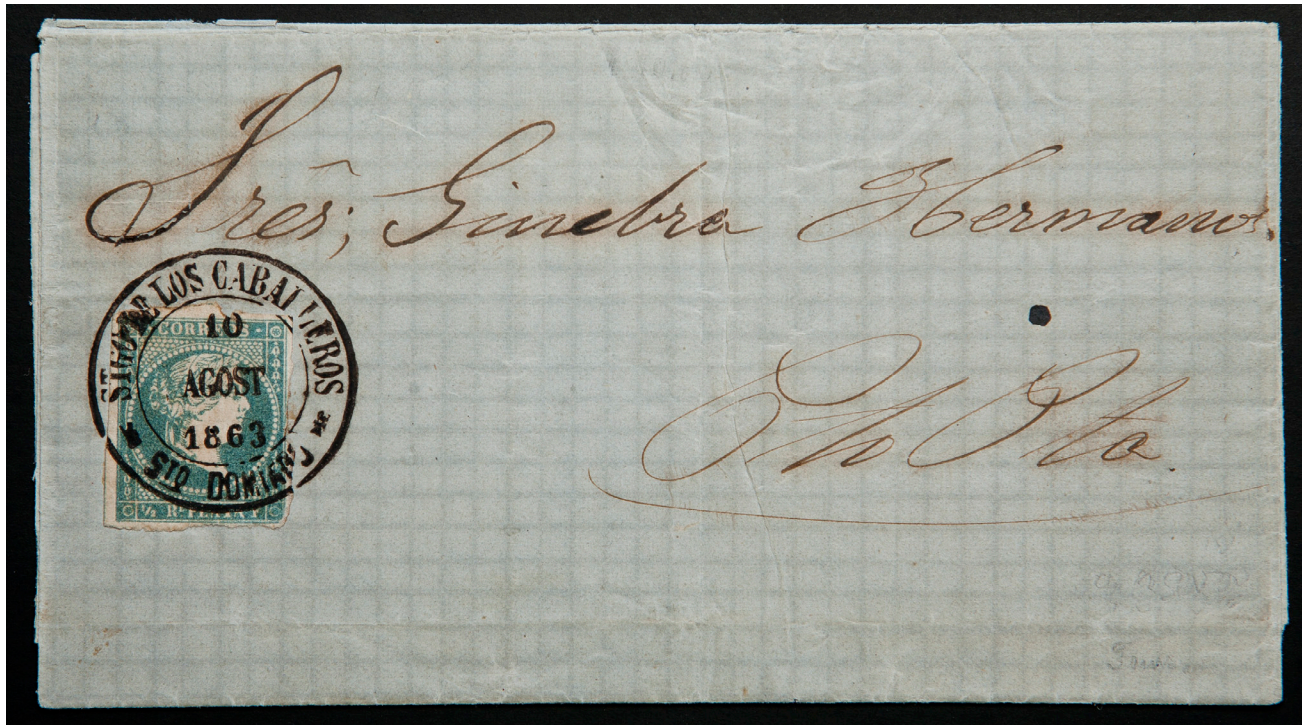 Srês; Ginebra Hermanos.
STGO. DE LOS CABALLEROS
10
AGOST
1863
STO DOMINGO
CORREOS
½ Rl PLATA F
Pto Pta